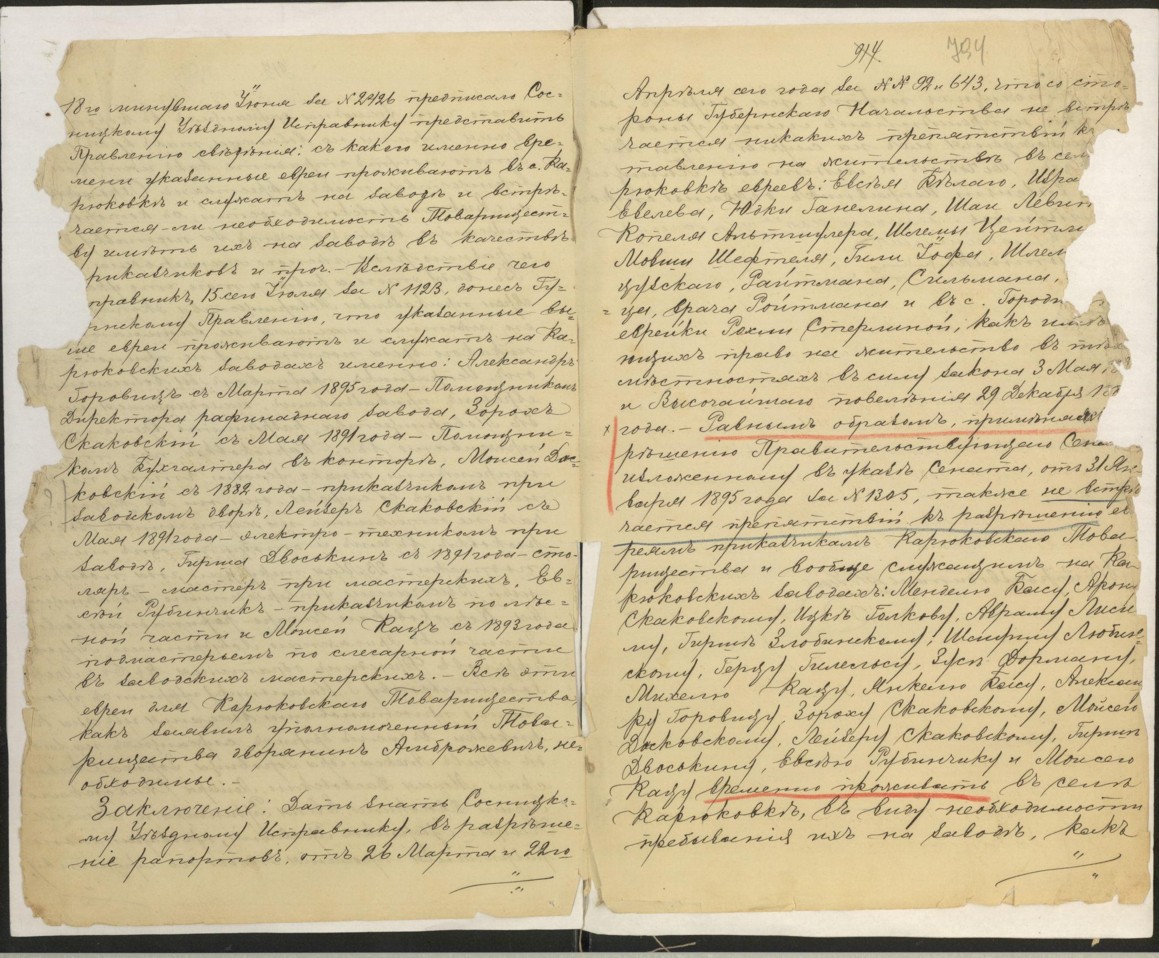 18го минувшаго Іюня за № 2426 предписало Сос-
ницкому Уѣздному Исправнику представить
Правленію свѣдѣнія: съ какого именно вре-
мени указанные евреи проживаютъ въ с. Ка-
рюковкѣ и служатъ на заводѣ и встрѣ-
чается-ли необходимость Товарищест-
ву имѣть ихъ на заводѣ въ качествѣ
рикащиковъ и проч. - Вслѣдствіе чего
правникъ, 15 сего Іюля за № 1123, донесъ Гу-
рнскому Правленію, что указанные вы-
ше евреи проживаютъ и служатъ на Ка-
рюковскихъ заводахъ именно: Александръ
Горовицъ съ Марта 1895 года - Помощникомъ
Директора рафинаднаго завода, Зорохъ
Скаковскій съ Мая 1891 года - Помощни-
комъ Бухгалтера въ конторѣ, Моисей Дос-
ковскій съ 1882 года - прикащикомъ при
заводскомъ дворѣ, Лейзеръ Скаковскій съ
Мая 1891 года - электро-техникомъ при
заводѣ, Гирша Двоськинъ съ 1891 года - сто-
ляръ - мастеръ при мастерскихъ, Ев-
сѣй Рубинчикъ - прикащикомъ по лѣс-
ной части и Моисей Кацъ съ 1893 года
подмастерьемъ по слесарной части
въ заводскихъ мастерскихъ. - Всѣ эти
евреи для Карюковскаго Товарищества,
какъ заявилъ уполномоченный Това-
рищества дворянинъ Амброжевичъ, не-
обходимы. -
Заключеніе: Дать знать Сосницко-
му Уѣздному Исправнику, въ разрѣше-
ніе рапортовъ, отъ 26 Марта и 22го
914. 794
Апрѣля сего года за №№ 92 и 643, что со сто-
роны Губернскаго Начальства не встрѣ-
чается никакихъ препятствій к
тавленію на жительствѣ въ сел
рюковкѣ евреевъ: Евсѣя Бѣлаго, Изра
Евелева, Юдки Ганелина, Шаи Левин
Копеля Альтшулера, Шлемы Цейтли
Мовши Шефтеля, Гили Іофа, Шлем
цузскаго, Райтмана, Сильмана,
ца, врача Ройтмана и въ с. Городн
еврейки Рохли Стерлиной, какъ имѣ
ющихъ право на жительство въ тѣхъ
мѣстностяхъ въ силу закона 3 Мая
и Высочайшаго повелѣнія 29 Декабря
года. - Равнымъ образомъ, примѣняясь
рѣшенію Правительствующаго Сена
изложенному въ указѣ Сената, отъ 31 Ян-
варя 1895 года за № 1305, также не встрѣ-
чается препятствій къ разрѣшенію ев
реямъ прикащикамъ Карюковскаго Това-
рищества и вообще служащимъ на Ка-
рюковскихъ заводахъ: Менделю Басу, Арону
Скаковскому, Ицкѣ Голкову, Авраму Лиси
му, Гиршѣ Злобинскому, Шмушу Любин-
скому, Герцу Гилельсу, Зусѣ Форману,
Михелю Кацу, Янкелю Басу, Александ
ру Горовицу, Зороху Скаковскому, Моисею
Досковскому, Лейзеру Скаковскому, Гиршѣ
Двоськину, Евсѣю Рубинчику и Моисею
Кацу временно проживать въ селѣ
Карюковкѣ, въ виду необходимости
пребыванія ихъ на заводѣ, какъ